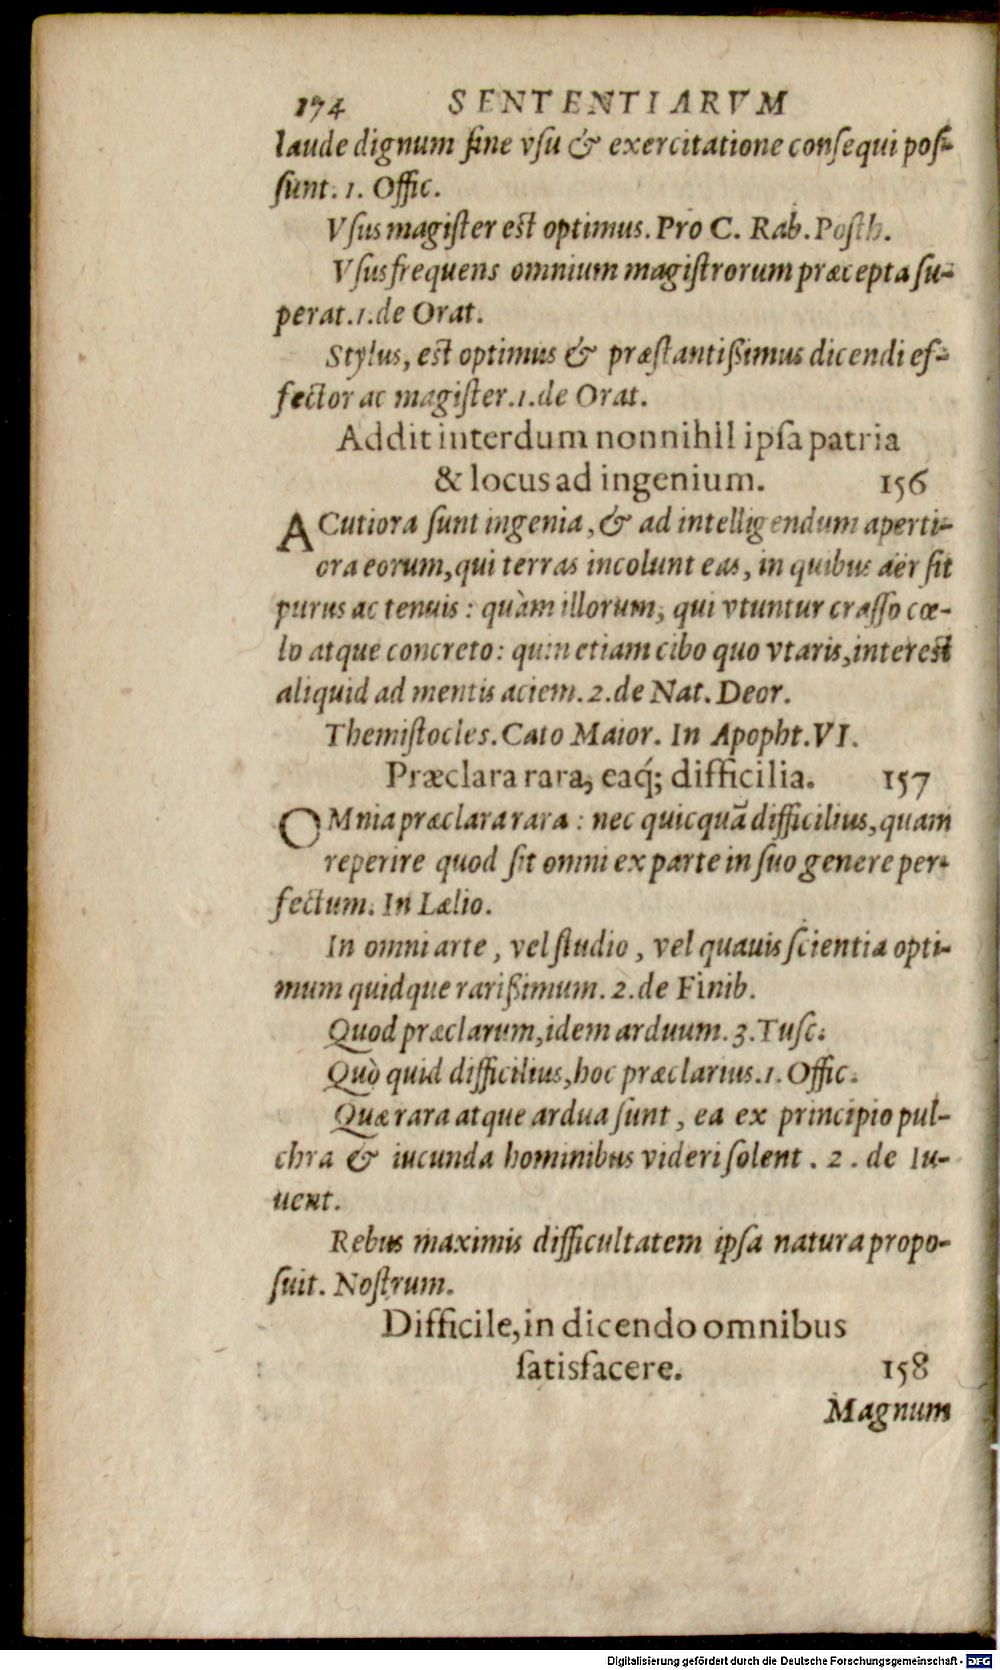 174 SENTENTIARVM
laude dignum ſine vſu & exercitatione conſequi poſ-
ſunt. 1. Offic.
Vſus magiſter eſt optimus. Pro C. Rab. Poſth.
Vſus frequens omnium magiſtrorum præcepta ſu-
perat. 1. de Orat.
Stylus, eſt optimus & præſtantißimus dicendi ef-
fector ac magiſter. 1. de Orat.
Addit interdum nonnihil ipſa patria
& locus ad ingenium. 156
ACutiora ſunt ingenia, & ad intelligendum aperti-
ora eorum, qui terras incolunt eas, in quibus aër ſit
purus ac tenuis: quàm illorum, qui vtuntur craſſo cœ-
lo atque concreto: quin etiam cibo quo vtaris, intereſt
aliquid ad mentis aciem. 2. de Nat. Deor.
Themiſtocles. Cato Maior. In Apopht. VI.
Præclara rara, eaq́; difficilia. 157
OMnia præclara rara: nec quicquã difficilius, quam
reperire quod ſit omni ex parte in ſuo genere per-
fectum. In Lælio.
In omni arte, vel ſtudio, vel quauis ſcientia opti-
mum quidque rarißimum. 2. de Finib.
Quod præclarum, idem arduum. 3. Tuſc.
Quò quid difficilius, hoc præclarius. 1. Offic.
Quæ rara atque ardua ſunt, ea ex principio pul-
chra & iucunda hominibus videri ſolent. 2. de Iu-
uent.
Rebus maximis difficultatem ipſa natura propo-
ſuit. Noſtrum.
Difficile, in dicendo omnibus
ſatisfacere. 158
Magnum
Digitalisierung gefördert durch die Deutsche Forschungsgemeinschaft - DFG